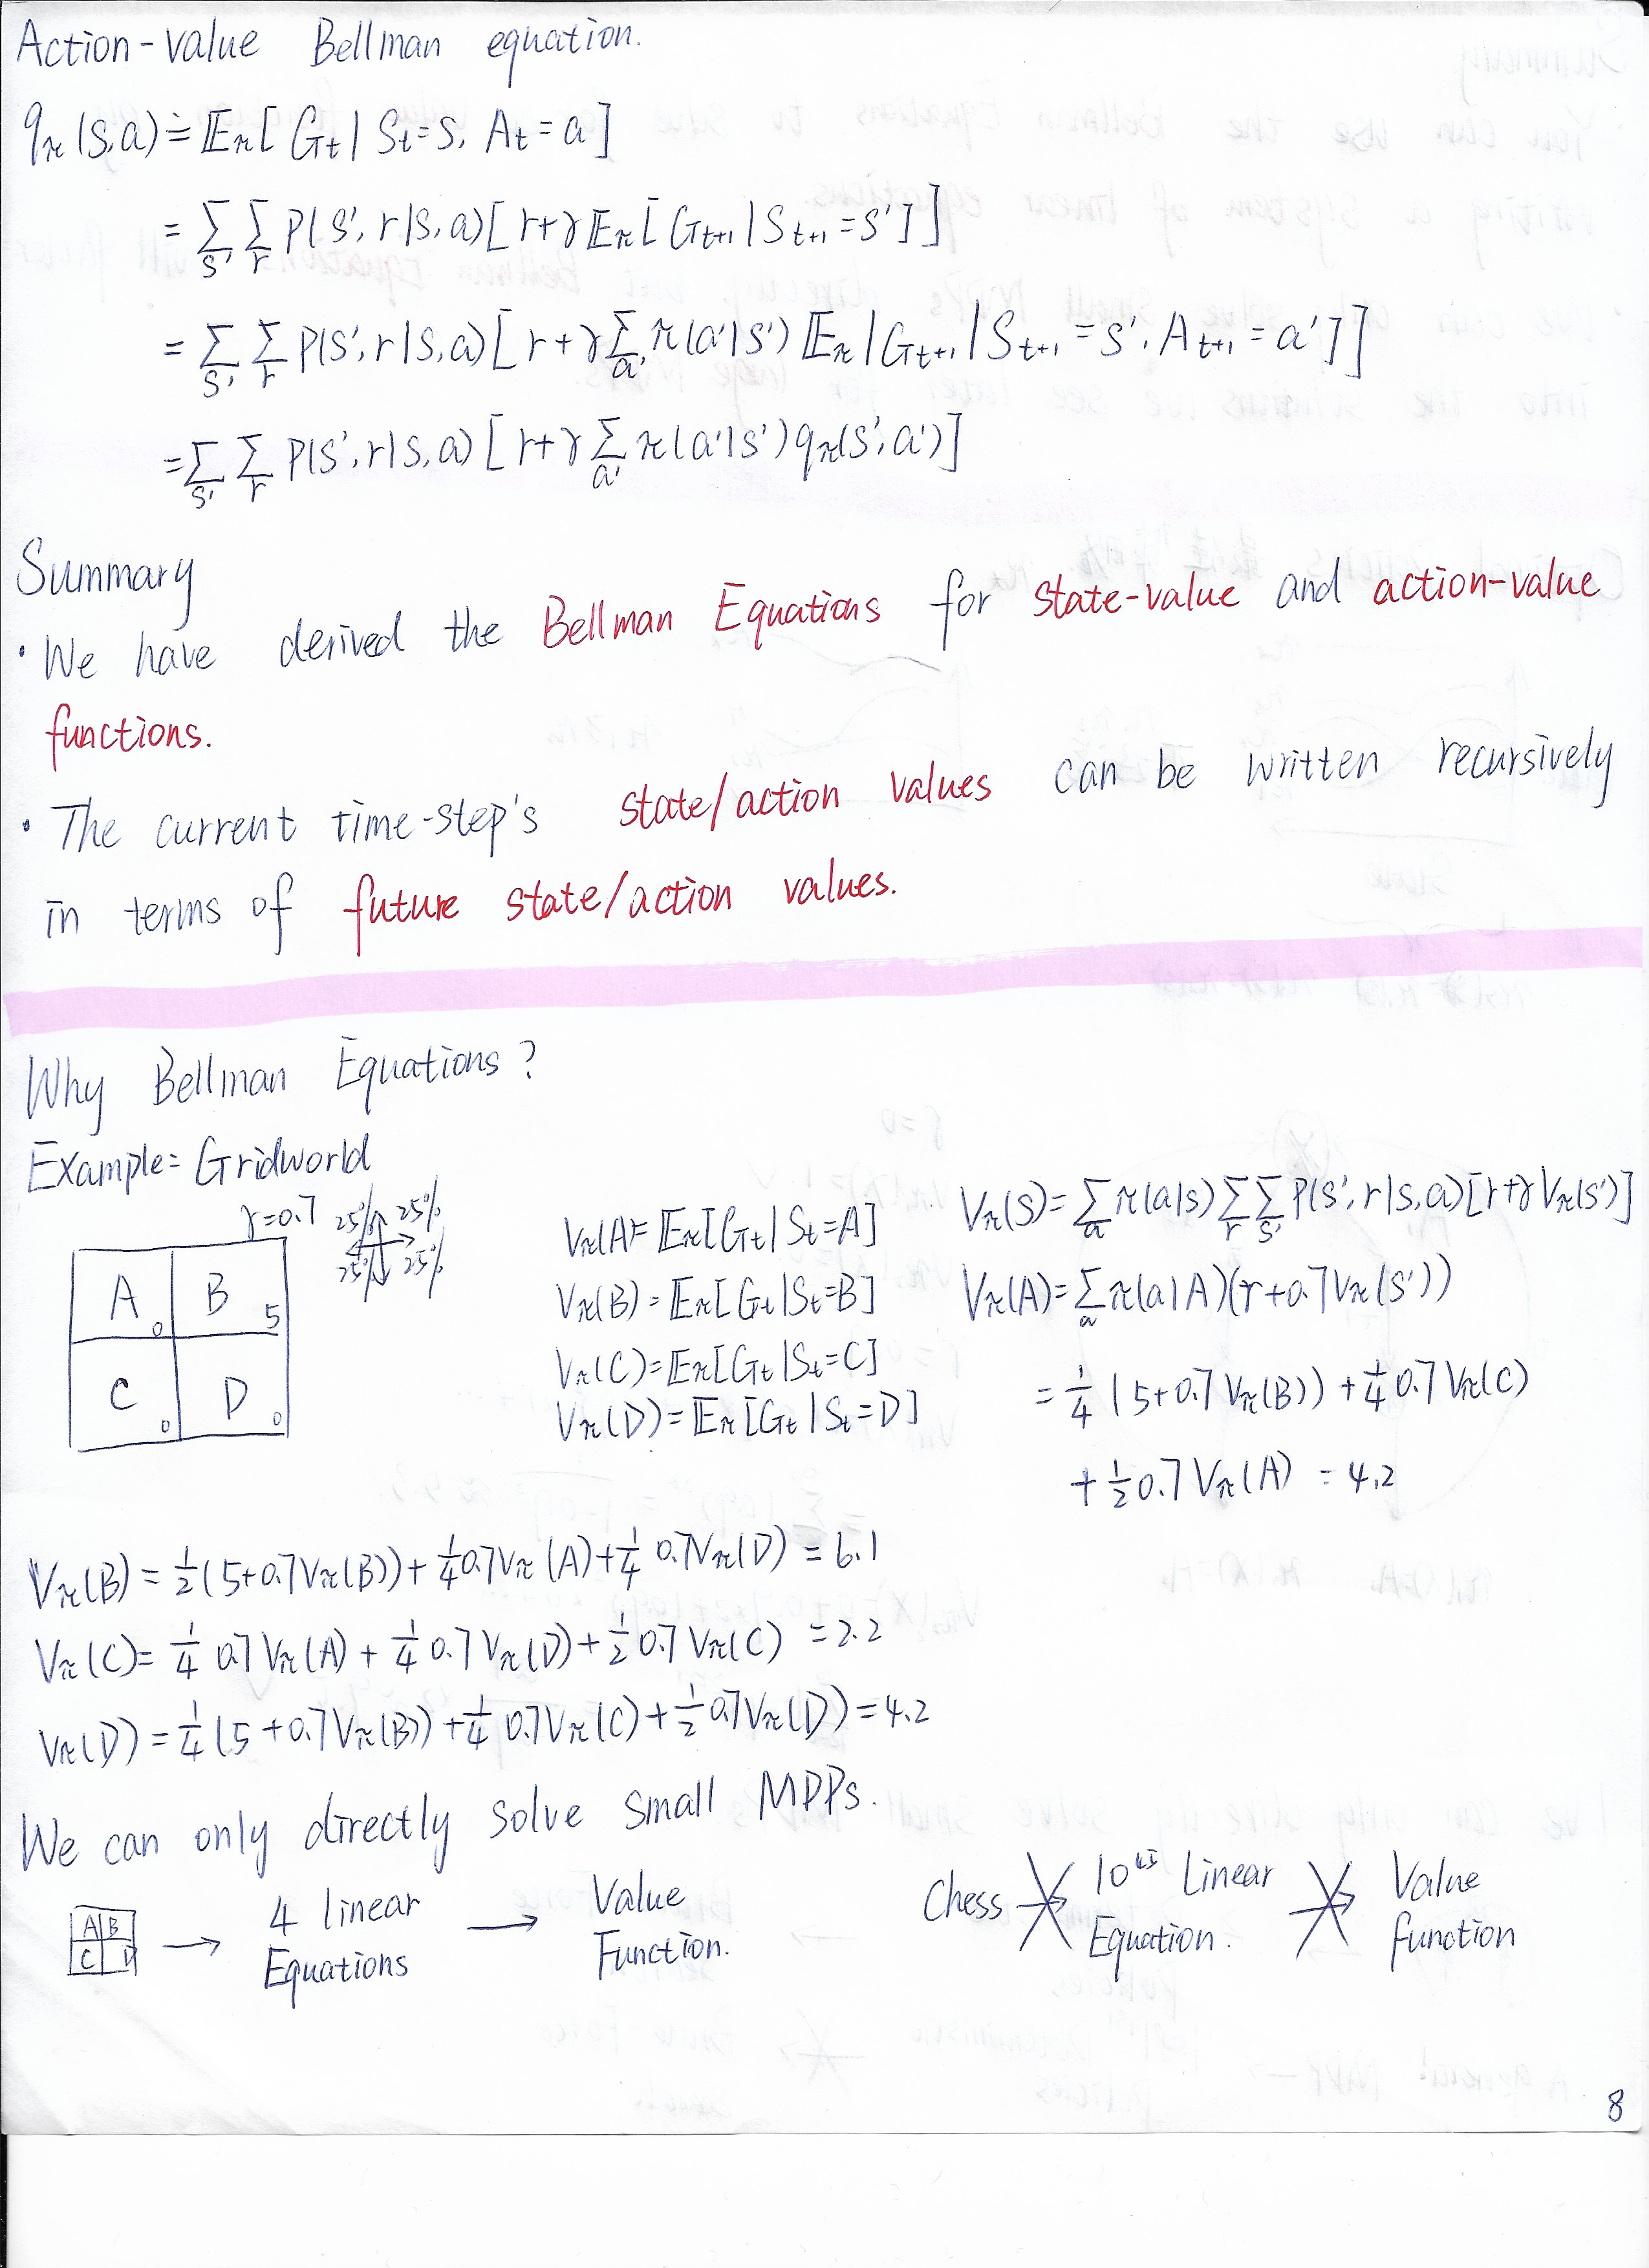 Action-value Bellman equation.
qπ(s,a) ≐ 𝔼π[Gt | St=s, At=a]
= Σs' Σr P(s',r|s,a)[r+γ𝔼π[Gt+1 | St+1=s']]
= Σs' Σr P(s',r|s,a)[r+γΣa' π(a'|s') 𝔼π[Gt+1 | St+1=s', At+1=a']]
= Σs' Σr P(s',r|s,a)[r+γΣa' π(a'|s') qπ(s',a')]
Summary
· We have derived the Bellman Equations for state-value and action-value
functions.
· The current time-step's state/action values can be written recursively
in terms of future state/action values.
Why Bellman Equations?
Example: Gridworld
γ=0.7
25% 25%
25% 25%
A 0 B 5
C 0 D 0
Vπ(A)= 𝔼π[Gt | St=A]
Vπ(B) = 𝔼π[Gt | St=B]
Vπ(C)= 𝔼π[Gt | St=C]
Vπ(D) = 𝔼π[Gt | St=D]
Vπ(s)= Σa π(a|s) Σr Σs' P(s',r|s,a)[r+γVπ(s')]
Vπ(A)= Σa π(a|A)(r+0.7Vπ(s'))
= 1/4 (5+0.7Vπ(B)) + 1/4 0.7Vπ(C)
+ 1/2 0.7Vπ(A) = 4.2
Vπ(B) = 1/2(5+0.7Vπ(B)) + 1/4 0.7Vπ(A) + 1/4 0.7Vπ(D) = 6.1
Vπ(C)= 1/4 0.7Vπ(A) + 1/4 0.7Vπ(D) + 1/2 0.7Vπ(C) = 2.2
Vπ(D) = 1/4(5+0.7Vπ(B)) + 1/4 0.7Vπ(C) + 1/2 0.7Vπ(D) = 4.2
We can only directly solve small MDPs.
A B
C D
→ 4 linear
Equations
→ Value
Function.
Chess → 10^45 Linear
Equation.
→ Value
function
8